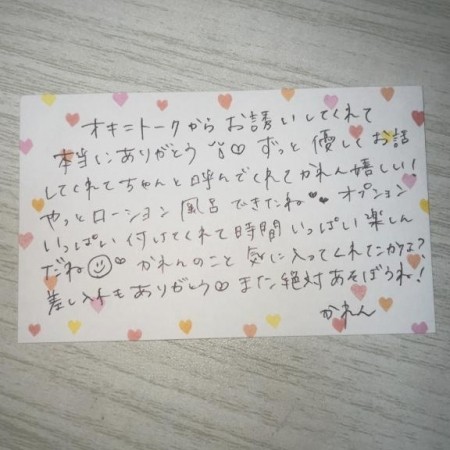 オキニトークからお誘いしてくれて
本当にありがとう♡ ずっと優しくお話
してくれてちゃんと呼んでくれてかれん嬉しい!
やっとローション風呂できたね♥ オプション
いっぱい付けてくれて時間いっぱい楽しん
だね☺♡ かれんのこと気に入ってくれたかな?
差し入れもありがとう♡また絶対あそぼうね!
かれん